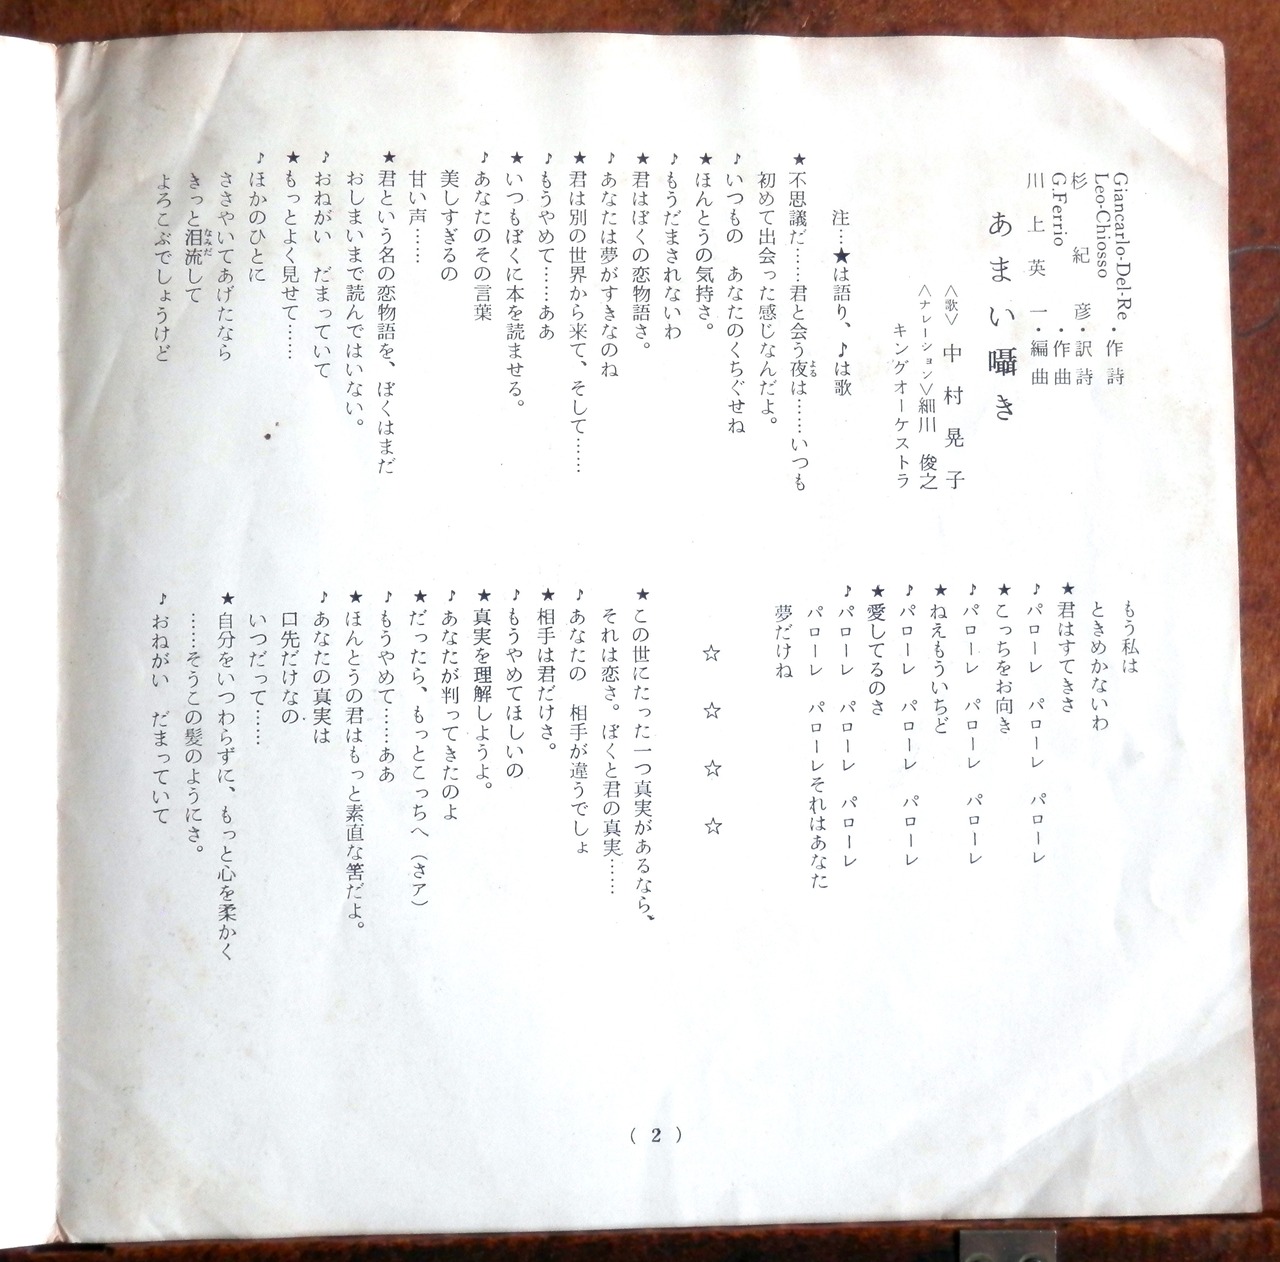 Giancarlo-Del-Re・作詩
Leo-Chiosso
杉紀彦・訳詩
G.Ferrio・作曲
川上英一・編曲
あまい囁き
〈歌〉中村晃子
〈ナレーション〉細川俊之
キングオーケストラ
注…★は語り、♪は歌
★不思議だ……君と会う夜は……いつも
よる
初めて出会った感じなんだよ。
♪いつもの　あなたのくちぐせね
★ほんとうの気持さ。
♪もうだまされないわ
★君はぼくの恋物語さ。
♪あなたは夢がすきなのね
★君は別の世界から来て、そして……
♪もうやめて……ああ
★いつもぼくに本を読ませる。
♪あなたのその言葉
美しすぎるの
甘い声……
★君という名の恋物語を、ぼくはまだ
おしまいまで読んではいない。
♪おねがい　だまっていて
★もっとよく見せて……
♪ほかのひとに
ささやいてあげたなら
きっと泪流して
なみだ
よろこぶでしょうけど
もう私は
ときめかないわ
★君はすてきさ
♪パローレ　パローレ　パローレ
★こっちをお向き
♪パローレ　パローレ　パローレ
★ねえもういちど
♪パローレ　パローレ　パローレ
★愛してるのさ
♪パローレ　パローレ　パローレ
パローレ　パローレそれはあなた
夢だけね
☆　☆　☆　☆
★この世にたった一つ真実があるなら、
それは恋さ。ぼくと君の真実……
♪あなたの　相手が違うでしょ
★相手は君だけさ。
♪もうやめてほしいの
★真実を理解しようよ。
♪あなたが判ってきたのよ
★だったら、もっとこっちへ（さア）
♪もうやめて……ああ
★ほんとうの君はもっと素直な筈だよ。
♪あなたの真実は
口先だけなの
いつだって……
★自分をいつわらずに、もっと心を柔かく
……そうこの髪のようにさ。
♪おねがい　だまっていて
( 2 )